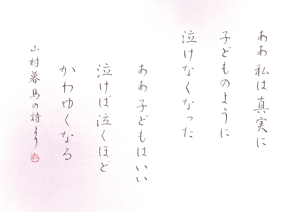 ああ 私は 真実に
子どものように
泣けなくなった
ああ子どもはいい
泣けば泣くほど
かわゆくなる
山村暮鳥の詩より